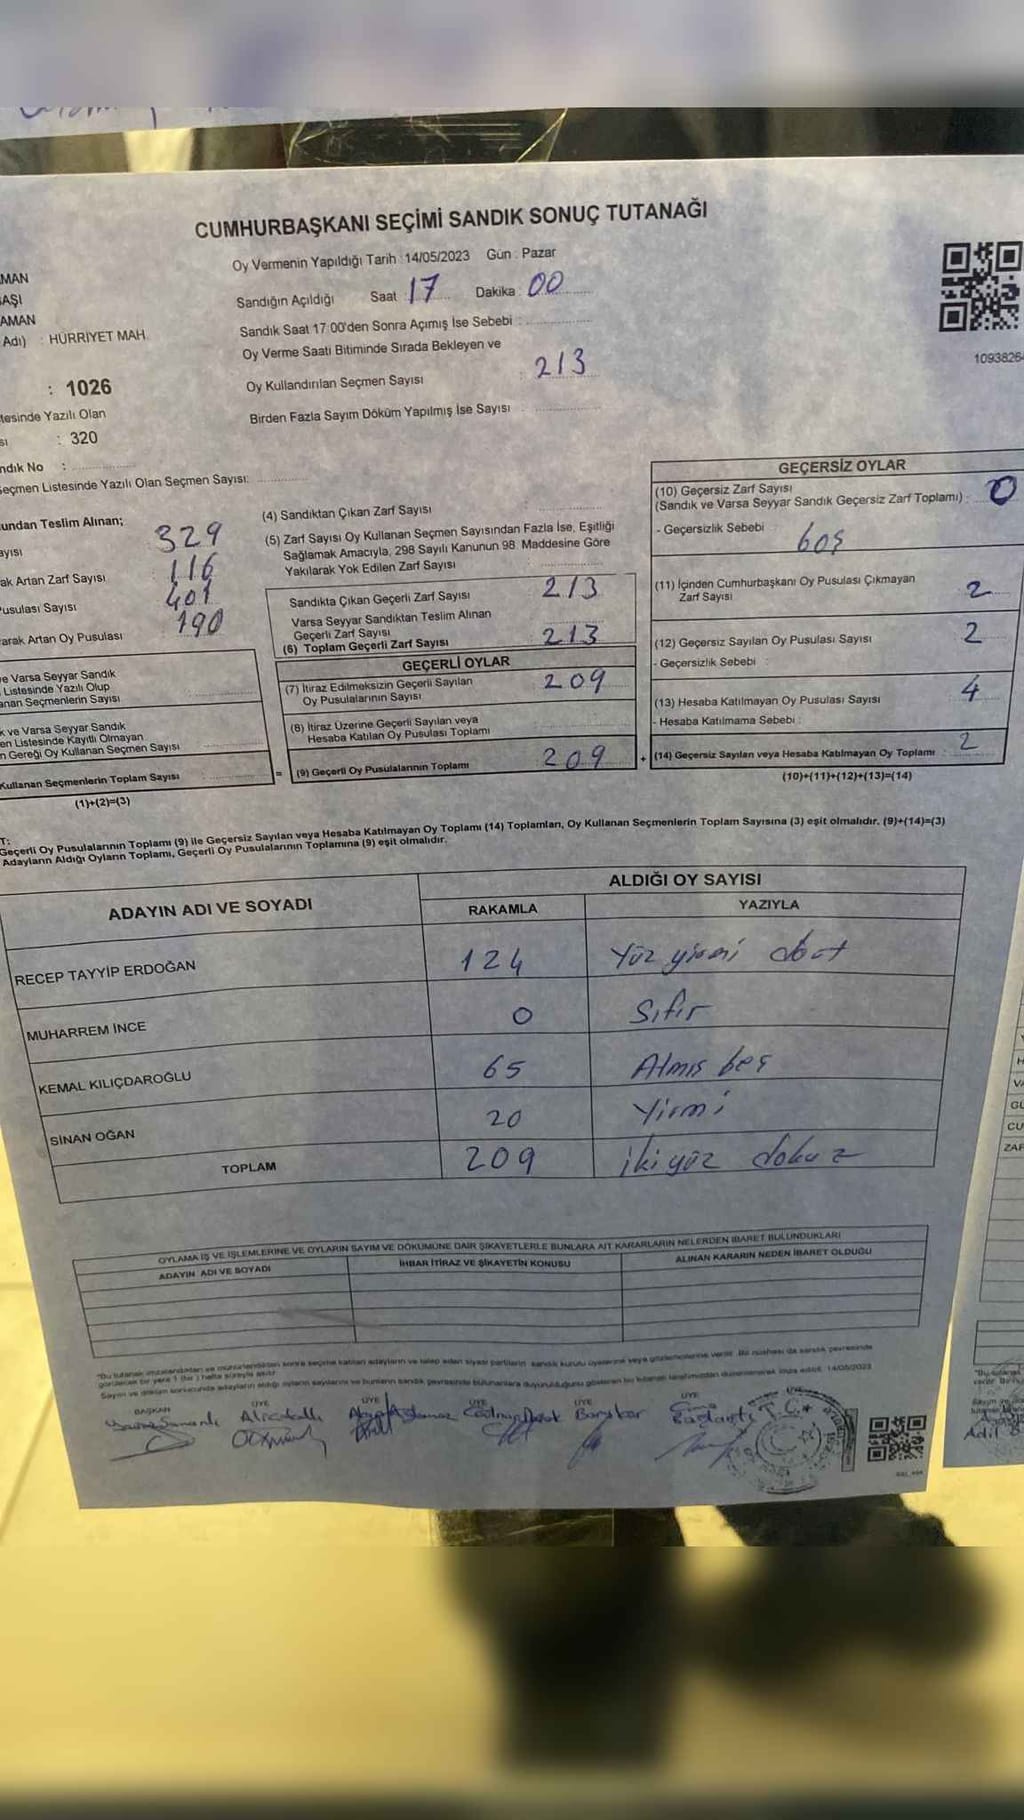 CUMHURBAŞKANI SEÇİMİ SANDIK SONUÇ TUTANAĞI
Oy Vermenin Yapıldığı Tarih : 14/05/2023 Gün : Pazar
MAN
AŞI
AMAN
Adı) : HÜRRİYET MAH.
Sandığın Açıldığı Saat 17 Dakika : 00
Sandık Saat 17:00'den Sonra Açımış İse Sebebi :
Oy Verme Saati Bitiminde Sırada Bekleyen ve
Oy Kullandırılan Seçmen Sayısı : 213
Birden Fazla Sayım Döküm Yapılmış İse Sayısı :
1093826
: 1026
tesinde Yazılı Olan
sı : 320
ndık No :
Seçmen Listesinde Yazılı Olan Seçmen Sayısı:
undan Teslim Alınan;
ayısı 329
ak Artan Zarf Sayısı 116
usulası Sayısı 401
arak Artan Oy Pusulası 190
ve Varsa Seyyar Sandık
Listesinde Yazılı Olup
anan Seçmenlerin Sayısı
k ve Varsa Seyyar Sandık
en Listesinde Kayıtlı Olmayan
n Gereği Oy Kullanan Seçmen Sayısı
Kullanan Seçmenlerin Toplam Sayısı
(1)+(2)=(3)
(4) Sandıktan Çıkan Zarf Sayısı
(5) Zarf Sayısı Oy Kullanan Seçmen Sayısından Fazla İse, Eşitliği
Sağlamak Amacıyla, 298 Sayılı Kanunun 98. Maddesine Göre
Yakılarak Yok Edilen Zarf Sayısı
Sandıkta Çıkan Geçerli Zarf Sayısı 213
Varsa Seyyar Sandıktan Teslim Alınan
Geçerli Zarf Sayısı
(6) Toplam Geçerli Zarf Sayısı 213
GEÇERLİ OYLAR
(7) İtiraz Edilmeksizin Geçerli Sayılan
Oy Pusulalarının Sayısı 209
(8) İtiraz Üzerine Geçerli Sayılan veya
Hesaba Katılan Oy Pusulası Toplamı
= (9) Geçerli Oy Pusulalarının Toplamı 209 +
GEÇERSİZ OYLAR
(10) Geçersiz Zarf Sayısı
(Sandık ve Varsa Seyyar Sandık Geçersiz Zarf Toplamı) : 0
- Geçersizlik Sebebi boş
(11) İçinden Cumhurbaşkanı Oy Pusulası Çıkmayan
Zarf Sayısı 2
(12) Geçersiz Sayılan Oy Pusulası Sayısı 2
- Geçersizlik Sebebi :
(13) Hesaba Katılmayan Oy Pusulası Sayısı 4
- Hesaba Katılmama Sebebi :
(14) Geçersiz Sayılan veya Hesaba Katılmayan Oy Toplamı 2
(10)+(11)+(12)+(13)=(14)
T:
Geçerli Oy Pusulalarının Toplamı (9) ile Geçersiz Sayılan veya Hesaba Katılmayan Oy Toplamı (14) Toplamları, Oy Kullanan Seçmenlerin Toplam Sayısına (3) eşit olmalıdır. (9)+(14)=(3)
Adayların Aldığı Oyların Toplamı, Geçerli Oy Pusulalarının Toplamına (9) eşit olmalıdır.
ADAYIN ADI VE SOYADI ALDIĞI OY SAYISI
RAKAMLA YAZIYLA
RECEP TAYYİP ERDOĞAN 124 Yüz yirmi dört
MUHARREM İNCE 0 Sıfır
KEMAL KILIÇDAROĞLU 65 Atmış beş
SİNAN OĞAN 20 Yirmi
TOPLAM 209 İkiyüz dokuz
OYLAMA İŞ VE İŞLEMLERİNE VE OYLARIN SAYIM VE DÖKÜMÜNE DAİR ŞİKAYETLERLE BUNLARA AİT KARARLARIN NELERDEN İBARET BULUNDUKLARI
ADAYIN ADI VE SOYADI İHBAR İTİRAZ VE ŞİKAYETİN KONUSU ALINAN KARARIN NEDEN İBARET OLDUĞU
BAŞKAN ÜYE ÜYE ÜYE ÜYE ÜYE